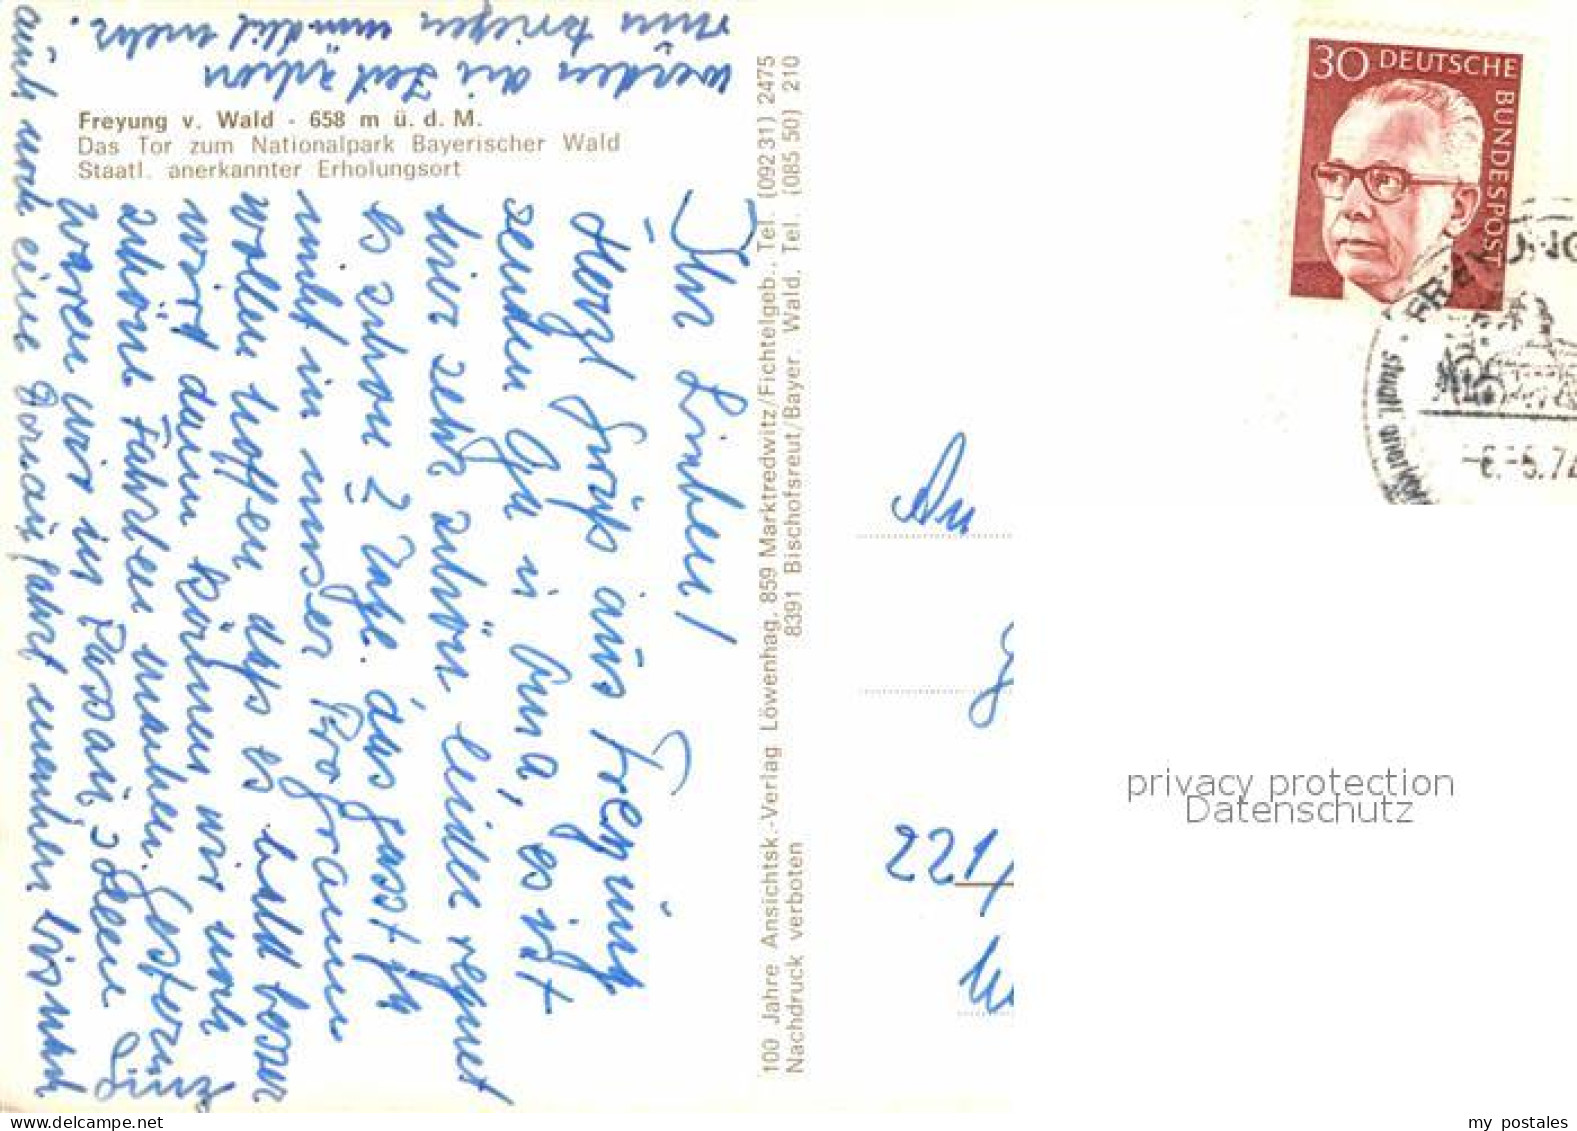 Freyung v. Wald - 658 m ü. d. M.
Das Tor zum Nationalpark Bayerischer Wald
Staatl. anerkannter Erholungsort
Ihr Lieben!
Herzl Grüße aus Freyung
senden Opa u Oma, es ist
hier sehr schön leider regnet
es schon 2 Tage. das passt ja
nicht in unser Programm
wollen hoffen daß es bald besser
wird dann können wir noch
schöne Fahrten machen. Gestern
waren wir in Passau sollen
auch noch eine Donaufahrt machen bis nach
werden die Zeit schon
rum kriegen und mehr.
100 Jahre Ansichtsk.-Verlag Löwenhag, 859 Marktredwitz/Fichtelgeb., Tel. (092 31) 2475
Nachdruck verboten 8391 Bischofsreut/Bayer. Wald, Tel. (085 50) 210
30 DEUTSCHE
BUNDESPOST
FREYUNG
staatl.
-6.-5.72
An
221
privacy protection
Datenschutz
my postales